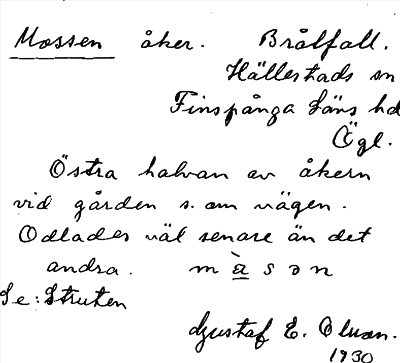 Mossen åker. Brålfall.
Hällestads sn
Finspånga läns hd
Ögl.
Östra halvan av åkern
vid gården s. om vägen.
Odlades väl senare än det
andra. m à s ɔ n
Se: Struten
Gustaf E. Olsson.
1930